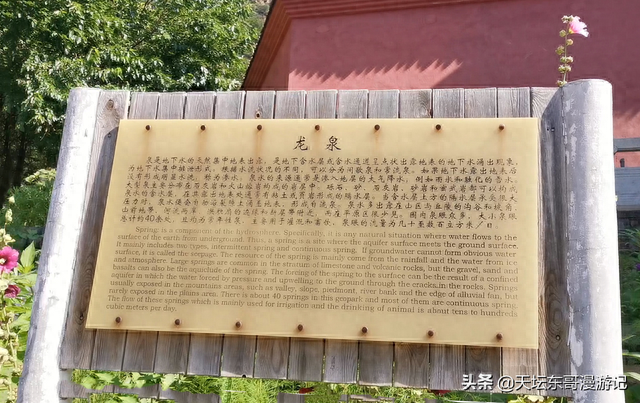 龙泉
泉是地下水的天然集中地表出露，是地下含水层或含水通道呈点状出露地表的地下水涌出现象，
为地下水集中排泄形式。根据水流状况的不同，可以分为间歇泉和常流泉。如果地下水出露地表后
没有形成明显水流，称为渗水。泉水的来源通常是渗入地层的大气降水，例如雨水和融化的雪水。
大型泉主要分布在石灰岩和火山熔岩构成的岩层中。
Spring: is a component of the hydrosphere. Spring is any natural situation where water flows to the
surface of the earth from underground. Thus, a spring is a site where the aquifer surface meets the ground surface.
It mainly includes two types, intermittent spring and continuous spring. If groundwater cannot form obvious water
surface, it is called the seepage. The resource of the spring is mainly come from the rainfall and the water from ice
and atmosphere. Large springs are common in the stratums of limestone and volcanic rocks, but the gravel, sand and
basalts can also be the aquifuls of the spring. The forcing of the spring to the surface can be the result of a confined
aquifer in which the water forced by pressure and upwelling to the ground through the cracks in the rocks. Springs
usually exposed in the mountains areas, such as valley, slope, piedmont, river bank and the edge of dilluvial fan, but
rarely exposed in the plains area. There is about 40 springs in this geopark and most of them are continuous spring.
The flow of these springs which is mainly used for irrigation and the drinking of animal is about tens to hundreds
cubic meters per day.
头条 @天坛东哥漫游记